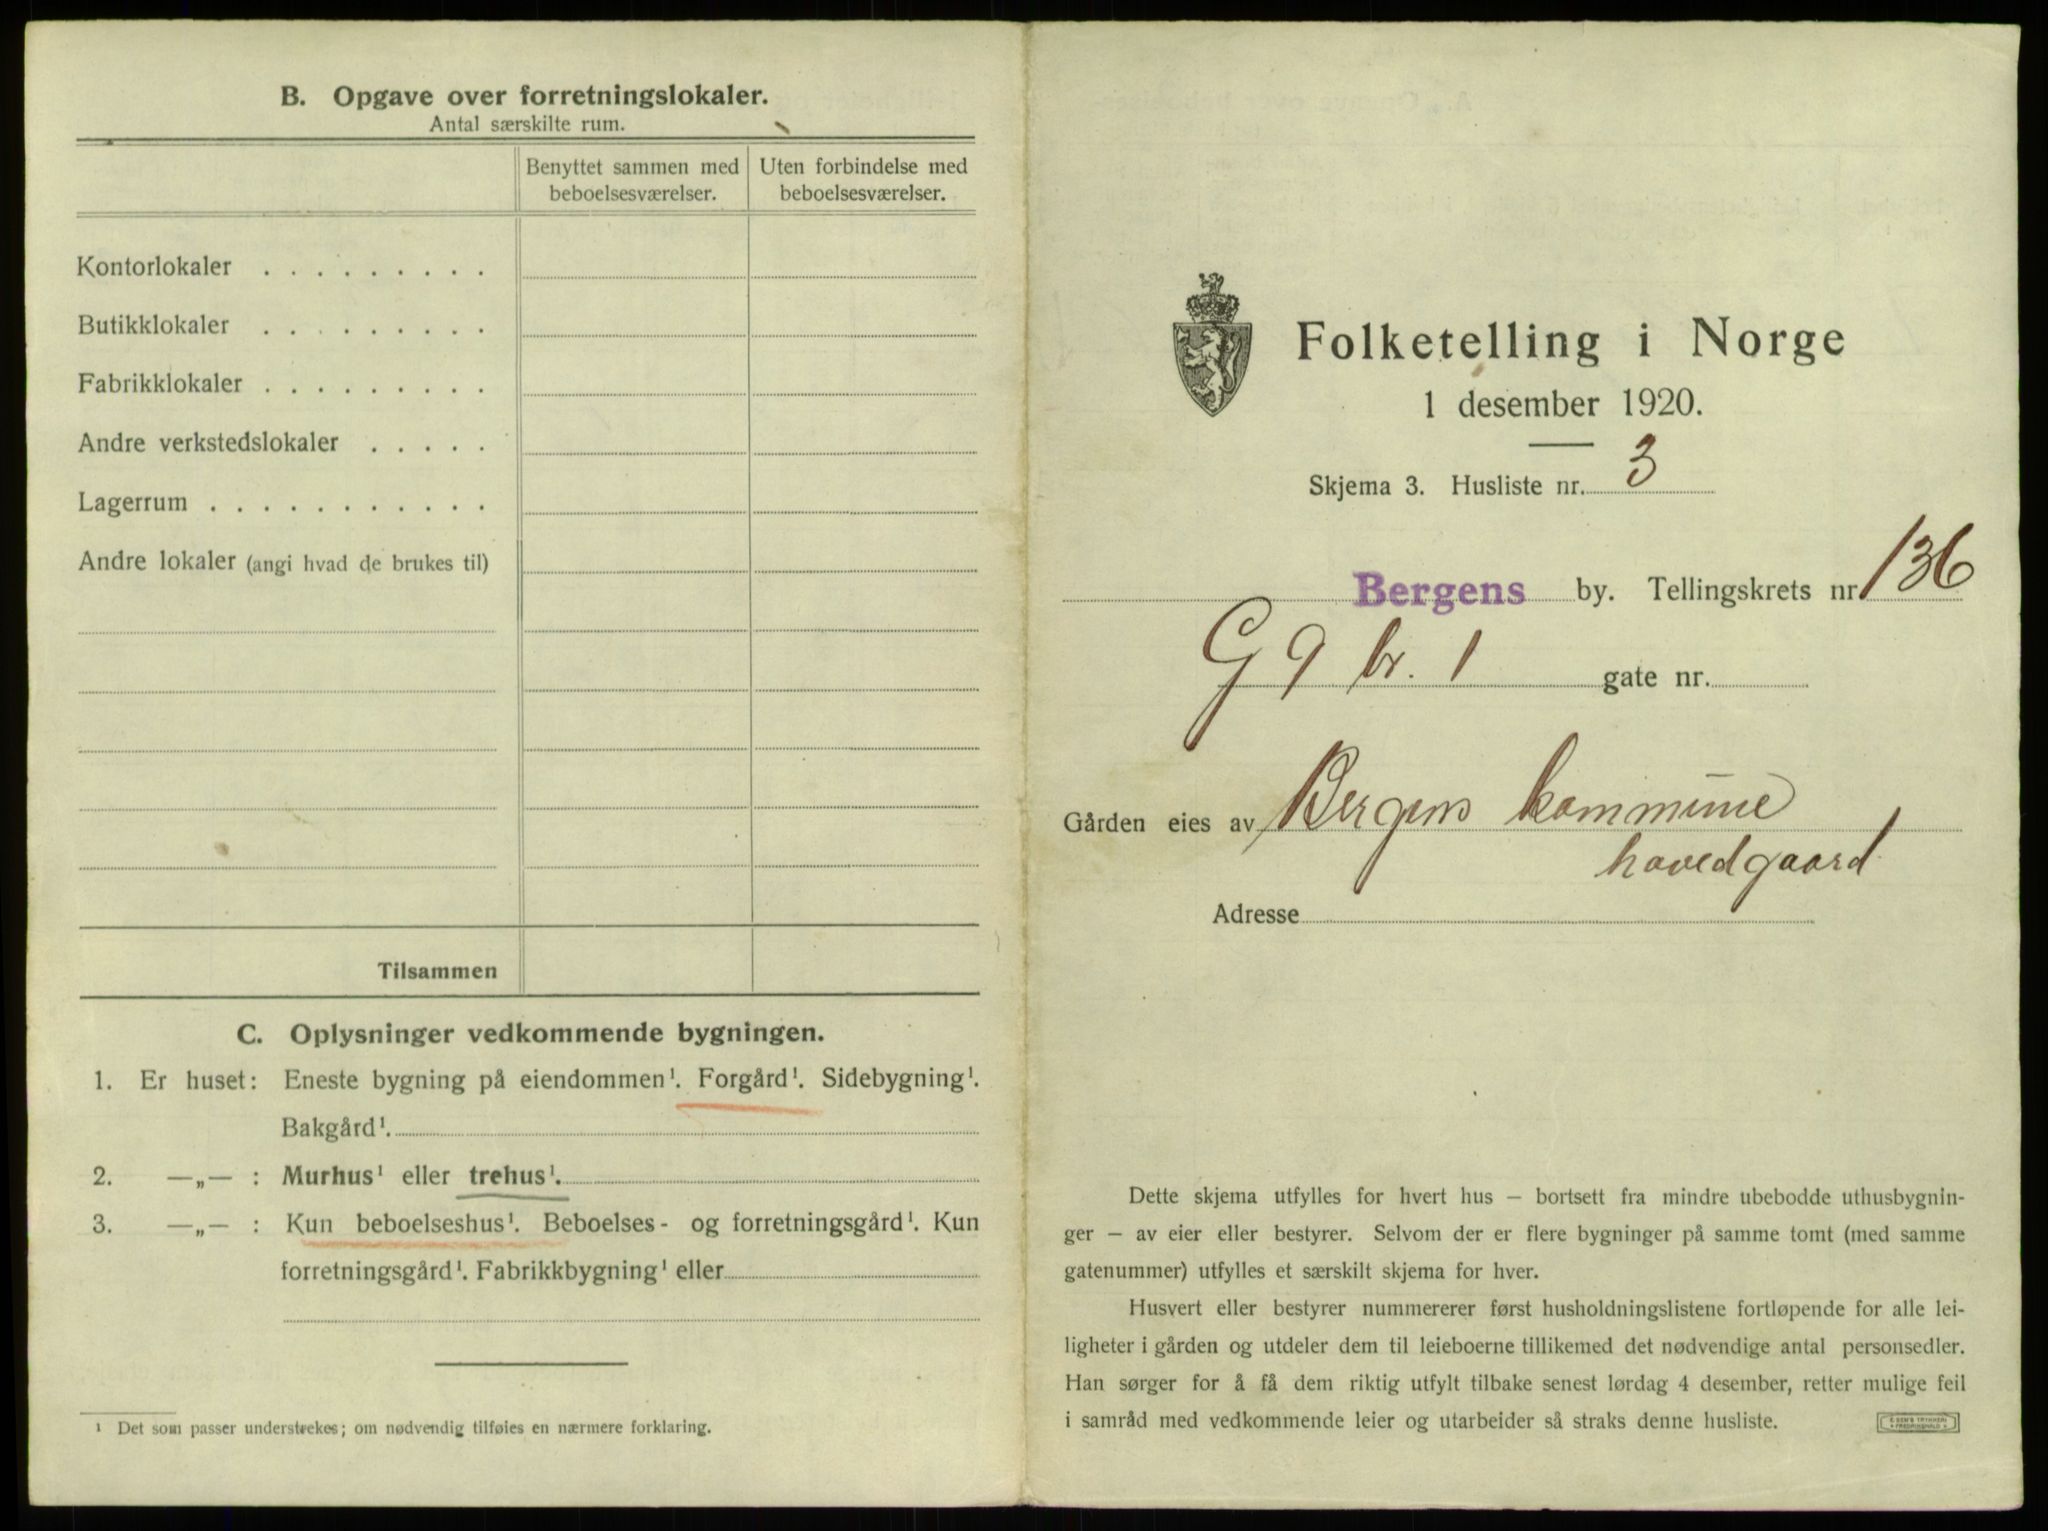 B. Opgave over forretningslokaler.
Antal særskilte rum.
Benyttet sammen med beboelsesværelser.
Uten forbindelse med beboelsesværelser.
Kontorlokaler . . . . . . . . .
Butikklokaler . . . . . . . . .
Fabrikklokaler . . . . . . . . .
Andre verkstedslokaler . . . . .
Lagerrum . . . . . . . . . . .
Andre lokaler (angi hvad de brukes til)
Tilsammen
C. Oplysninger vedkommende bygningen.
1. Er huset: Eneste bygning på eiendommen¹. Forgård¹. Sidebygning¹.
Bakgård¹.
2. —„— : Murhus¹ eller trehus¹.
3. —„— : Kun beboelseshus¹. Beboelses- og forretningsgård¹. Kun
forretningsgård¹. Fabrikkbygning¹ eller
¹ Det som passer understrekes; om nødvendig tilføies en nærmere forklaring.
Folketelling i Norge
1 desember 1920.
Skjema 3. Husliste nr. 3
Bergens by. Tellingskrets nr 136
G 9 br. 1 gate nr.
Gården eies av Bergens kommune
hovedgaard
Adresse
Dette skjema utfylles for hvert hus — bortsett fra mindre ubebodde uthusbygnin-
ger — av eier eller bestyrer. Selvom der er flere bygninger på samme tomt (med samme
gatenummer) utfylles et særskilt skjema for hver.
Husvert eller bestyrer nummererer først husholdningslistene fortløpende for alle lei-
ligheter i gården og utdeler dem til leieboerne tillikemed det nødvendige antal personsedler.
Han sørger for å få dem riktig utfylt tilbake senest lørdag 4 desember, retter mulige feil
i samråd med vedkommende leier og utarbeider så straks denne husliste.